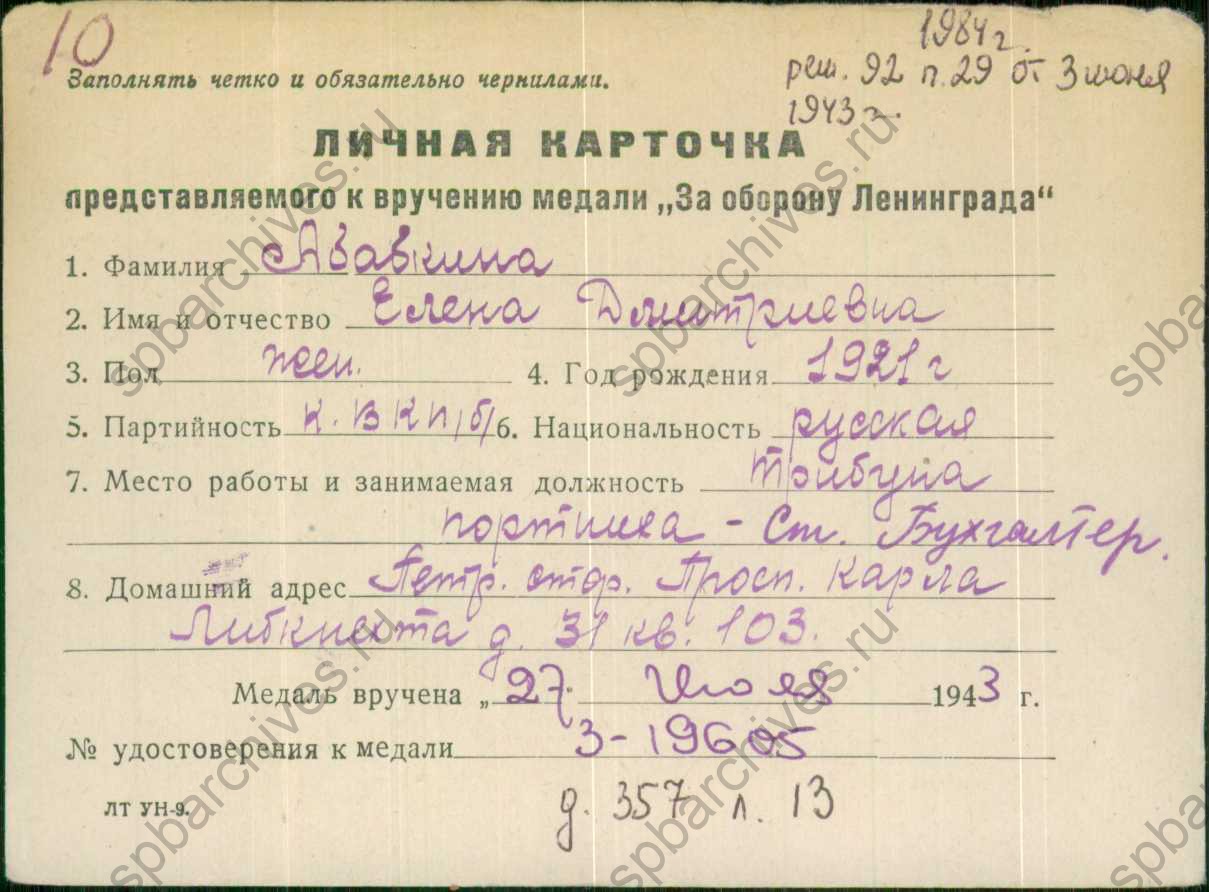 10
1984 г.
Заполнять четко и обязательно чернилами.
реш. 92 п. 29 от 3 июня
1943 г.
ЛИЧНАЯ КАРТОЧКА
представляемого к вручению медали „За оборону Ленинграда“
1. Фамилия Абавкина
2. Имя и отчество Елена Дмитриевна
3. Пол жен. 4. Год рождения 1921 г
5. Партийность К. ВКП/б/ 6. Национальность русская
7. Место работы и занимаемая должность Трибуна
портниха - Ст. Бухгалтер.
8. Домашний адрес Петр. стор. Просп. Карла
Либкнехта д. 31 кв. 103.
Медаль вручена „27 Июля 1943 г.
№ удостоверения к медали З-19605
ЛТ УН-9.
д. 357 л. 13
spbarchives.ru